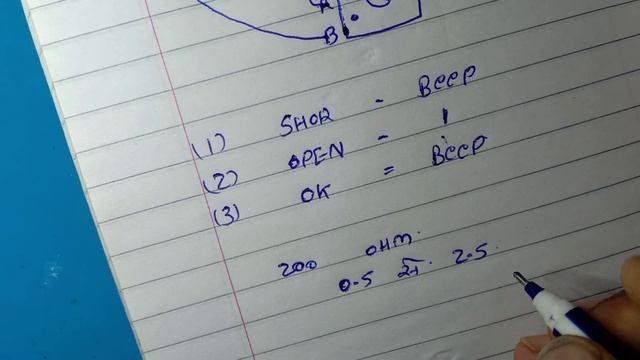 A
B
(1) SHOR - Beep
(2) OPEN - 1
(3) OK = Beep
200 OHM.
0.5 से 2.5